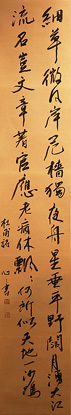 細草微風岸危檣獨夜舟星垂平野闊月湧大江
流名豈文章著官應老病休飄々何所似天地一沙鷗
杜甫詩 心書